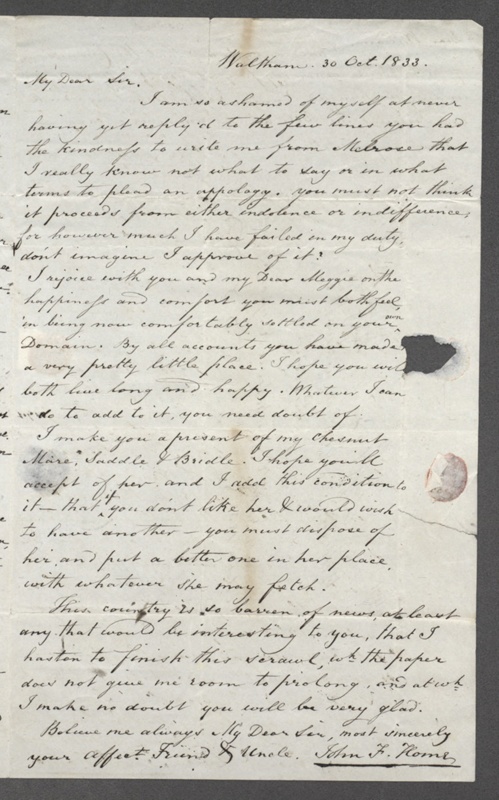 Waltham. 30 Oct. 1833.
My Dear Sir.
I am so ashamed of myself at never
having yet reply'd to the few lines you had
the kindness to write me from Melrose that
I really know not what to say or in what
terms to plead an appology. you must not think
it proceeds from either indolence or indifference,
for however much I have failed in my duty,
dont imagine I approve of it?
I rejoice with you and my Dear Meggie on the
happiness and comfort you must both feel,
in being now comfortably settled on your own
Domain. By all accounts you have made
a very pretty little place. I hope you will
both live long and happy. Whatever I can
do to add to it, you need doubt of.
I make you a present of my Chesnut
Mare, Saddle & Bridle. I hope you'll
accept of her and I add this condition to
it — that if you don't like her & would wish
to have another — you must dispose of
her and put a better one in her place,
with whatever she may fetch.
This country is so barren of news, at least
any that would be interesting to you, that I
hasten to finish this scrawl, wh. the paper
does not give me room to prolong, and at wh.
I make no doubt you will be very glad.
Believe me always My Dear Sir, most sincerely
your affect. Friend & Uncle. John F. Home